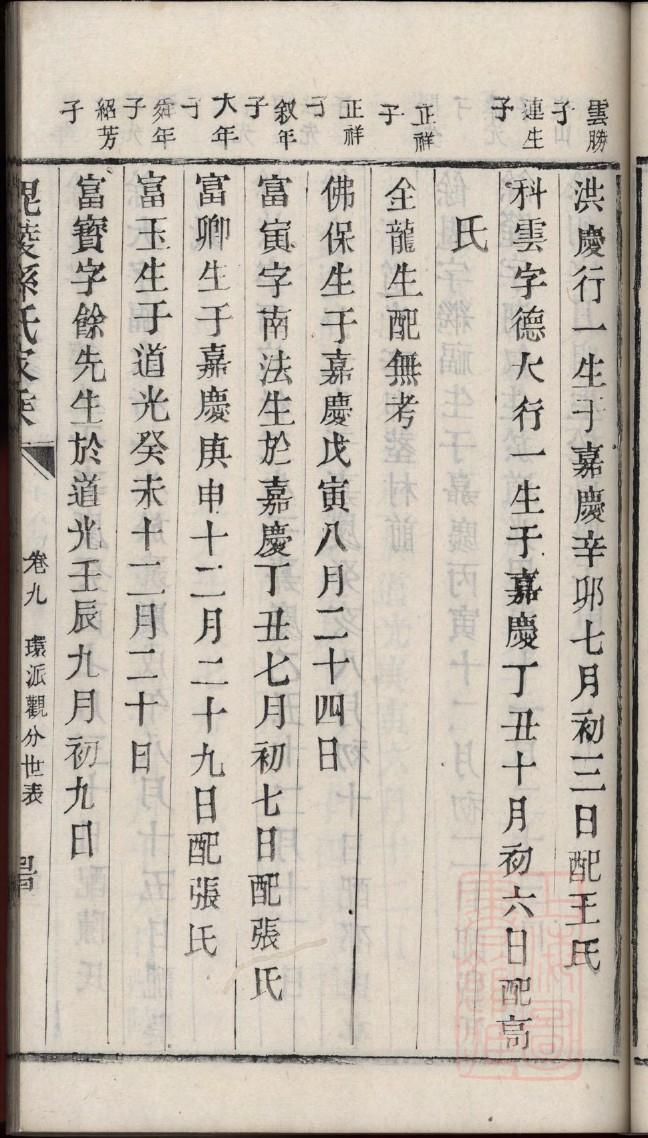 雲勝
子
洪慶行一生于嘉慶辛卯七月初三日配王氏
連生
子
科雲字德大行一生于嘉慶丁丑十月初六日配高
氏
正祥
子
全龍生配無考
正祥
子
佛保生于嘉慶戊寅八月二十四日
叙年
子
富寅字南法生於嘉慶丁丑七月初七日配張氏
大年
子
富卿生于嘉慶庚申十二月二十九日配張氏
舜年
子
富玉生于道光癸未十二月二十日
紹芳
子
富寶字餘先生於道光壬辰九月初九日
毘陵孫氏家乘
卷九 環派觀分世表